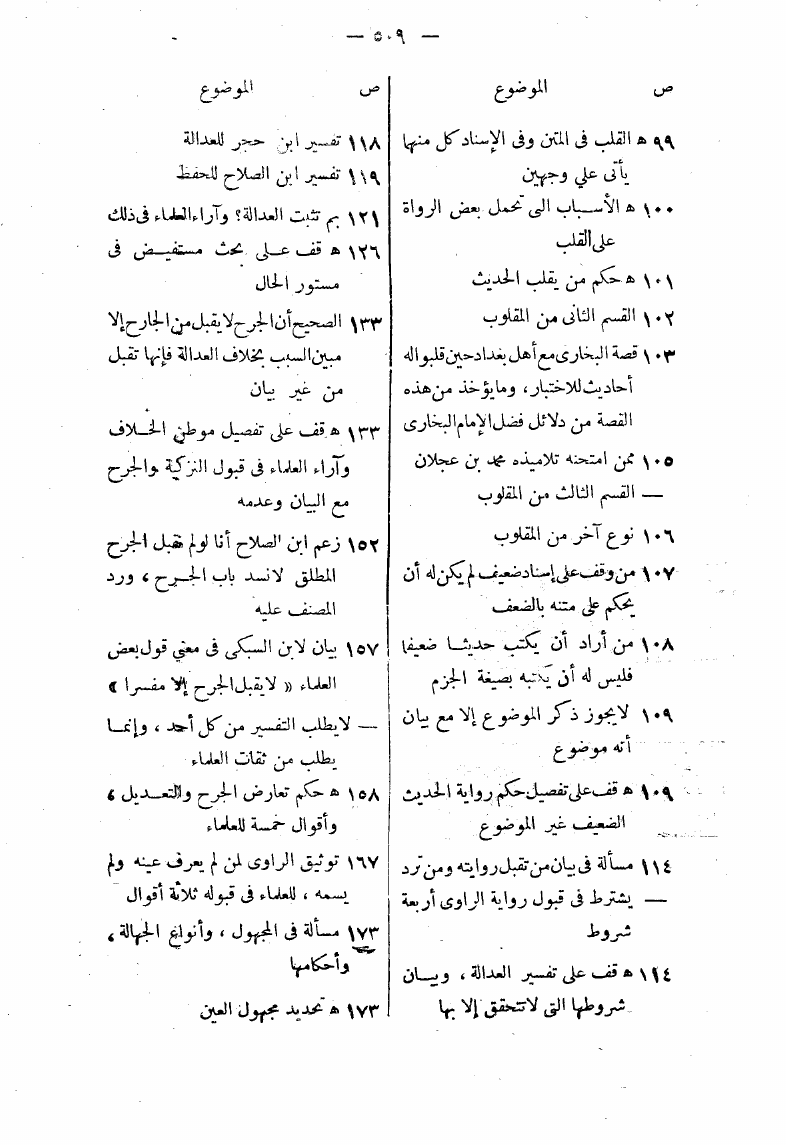 — ٥٠٩ —
ص الموضوع
٩٩ ه القلب فى المتن وفى الإسناد كل منهما
يأتى على وجهين
١٠٠ ه الأسباب التى تحمل بعض الرواة
على القلب
١٠١ ه حكم من يقلب الحديث
١٠٢ القسم الثانى من المقلوب
١٠٣ قصة البخارى مع أهل بغداد حين قلبوا له
أحاديث للاختبار، وما يؤخذ من هذه
القصة من دلائل فضل الإمام البخارى
١٠٥ ممن امتحنه تلاميذه محمد بن عجلان
— القسم الثالث من المقلوب
١٠٦ نوع آخر من المقلوب
١٠٧ من وقف على إسناد ضعيف لم يكن له أن
يحكم على متنه بالضعف
١٠٨ من أراد أن يكتب حديثا ضعيفا
فليس له أن يكتبه بصيغة الجزم
١٠٩ لايجوز ذكر الموضوع إلا مع بيان
أنه موضوع
١٠٩ ه قف على تفصيل حكم رواية الحديث
الضعيف غير الموضوع
١١٤ مسألة فى بيان من تقبل روايته ومن ترد
— يشترط فى قبول رواية الراوى أربعة
شروط
١١٤ ه قف على تفسير العدالة، وبيان
شروطها التى لاتتحقق إلا بها
ص الموضوع
١١٨ تفسير ابن حجر للعدالة
١١٩ تفسير ابن الصلاح للحفظ
١٢١ بم تثبت العدالة؟ وآراء العلماء فى ذلك
١٢٦ ه قف على بحث مستفيض فى
مستور الحال
١٣٣ الصحيح أن الجرح لا يقبل من الجارح إلا
مبين السبب بخلاف العدالة فإنها تقبل
من غير بيان
١٣٣ ه قف على تفصيل موطن الخلاف
وآراء العلماء فى قبول التزكية والجرح
مع البيان وعدمه
١٥٢ زعم ابن الصلاح أنا لو لم نقبل الجرح
المطلق لانسد باب الجرح، ورد
المصنف عليه
١٥٧ بيان لابن السبكى فى معنى قول بعض
العلماء «لا يقبل الجرح إلا مفسرا»
— لايطلب التفسير من كل أحد، وإنما
يطلب من ثقات العلماء
١٥٨ ه حكم تعارض الجرح والتعديل،
وأقوال خمسة للعلماء
١٦٧ توثيق الراوى لمن لم يعرف عينه ولم
يسمه، للعلماء فى قبوله ثلاثة أقوال
١٧٣ مسألة فى المجهول، وأنواع الجهالة،
وأحكامها
١٧٣ ه تحديد مجهول العين